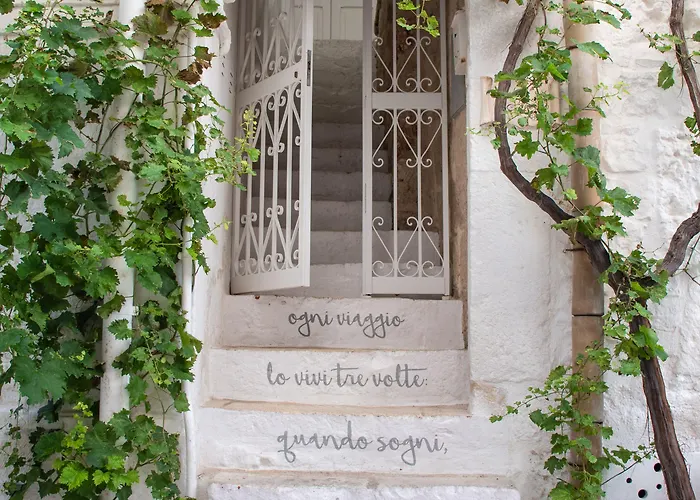 ogni viaggio
lo vivi tre volte:
quando sogni,